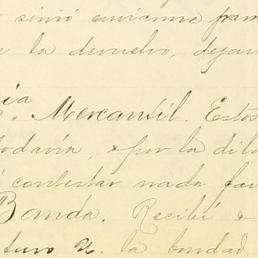 sirvió enviarme
e la devuelvo, dejan
ia. Mercantil. Estos
todavía, & por la dila
contestar nada fav
Banda. Recibí &
tuvo la bondad